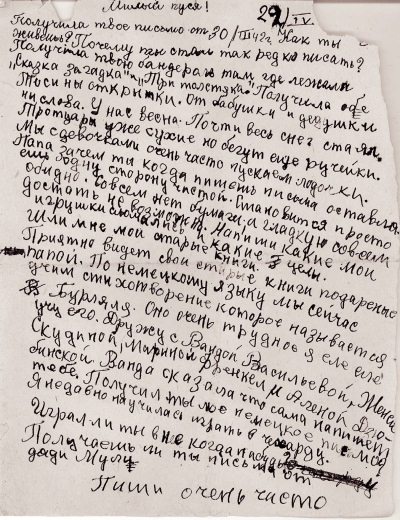 Милый пуся!
29/IV.
Получила твое письмо от 30/III 42 г. Как ты
живёшь? Почему ты стал так редко писать?
Получила твою бандероль там где лежали
„Сказка загадка" и „Три толстяка". Получила обе
Тосины открытки. От бабушки и дедушки
ни слова. У нас весна. Почти весь снег стаял.
Тротуары уже сухие но бегут еще ручейки.
Мы с девочками очень часто пускаем лодочки.
Папа зачем ты когда пишешь письма оставля-
ешь одну сторону чистой. Становится просто
обидно. Совсем нет бумаги а гладкую совсем
достать не возможно. Напиши какие мои
игрушки какие книги целы.
Шли мне мои старые книги.
Приятно видет свои старые книги подареные
папой. По немецкому языку мы сейчас
учим стихотворение которое называется
Бурляля. Оно очень трудное я еле еле
учу его. Дружу с Вандой Васильевой, Женей
Скудиной, Мариной Френкел и Агеной
бинской. Ванда сказала что сама напишет
тебе. Получил ты мое немецкое письмо
Я недавно научилась играть в чехарду.
Играл ли ты в нее когда
Получаешь ли ты письма от
дяди Мули
Пиши очень часто